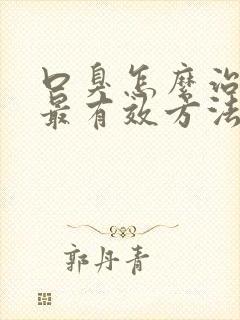 口臭怎么治
最有效方法
郭丹青